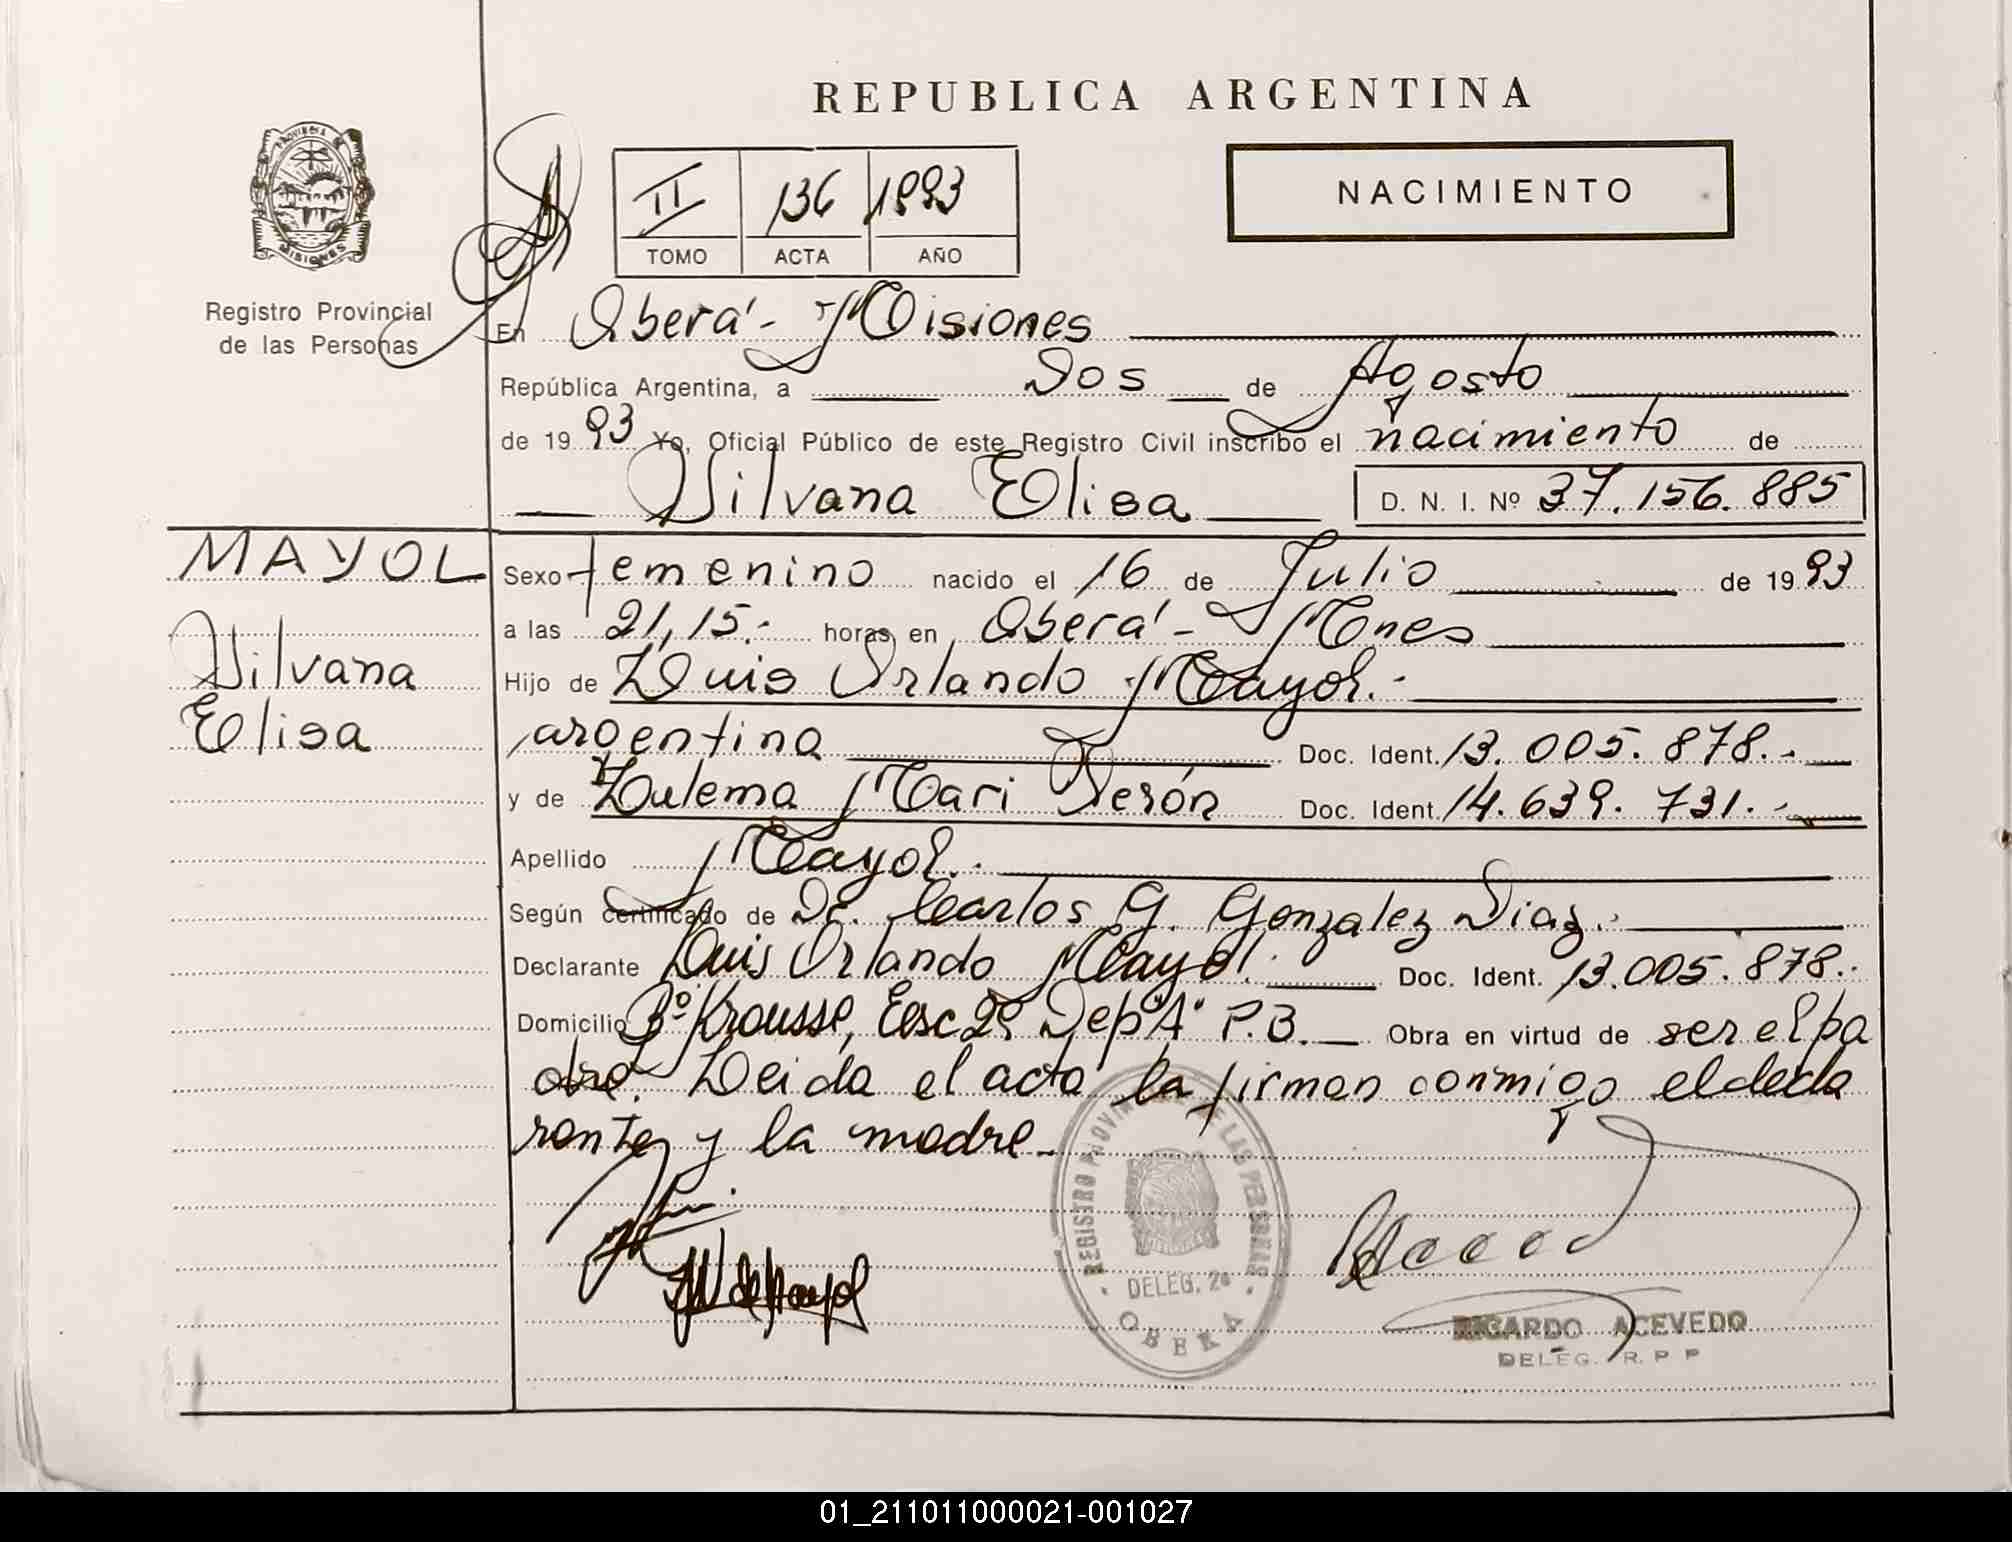 REPUBLICA ARGENTINA
PROVINCIA DE
MISIONES
Registro Provincial
de las Personas
II 136 1993
TOMO ACTA AÑO
NACIMIENTO
En Oberá - Misiones
República Argentina, a Dos de Agosto
de 1993 Yo, Oficial Público de este Registro Civil inscribo el nacimiento de
Silvana Elisa D. N. I. Nº 37.156.885
MAYOL
Silvana
Elisa
Sexo femenino nacido el 16 de Julio de 1993
a las 21,15.- horas en Oberá - Mnes
Hijo de Luis Orlando Mayol.-
argentina Doc. Ident. 13.005.878.-
y de Zulema Mari Doc. Ident. 14.639.731.-
Apellido Mayol.-
Según certificado de Dr. Carlos G. Gonzalez Diaz.-
Declarante Luis Orlando Mayol. Doc. Ident. 13.005.878.-
Domicilio Bº Krausse, Esc 29 Dep "A" P.B. Obra en virtud de ser el pa
dre. Leida el acta la firman conmigo el decla
rante y la madre.-
de Mayol
REGISTRO PROVINCIAL DE LAS PERSONAS
DELEG. 2ª
OBERA
RICARDO ACEVEDO
DELEG. R. P P
01_211011000021-001027